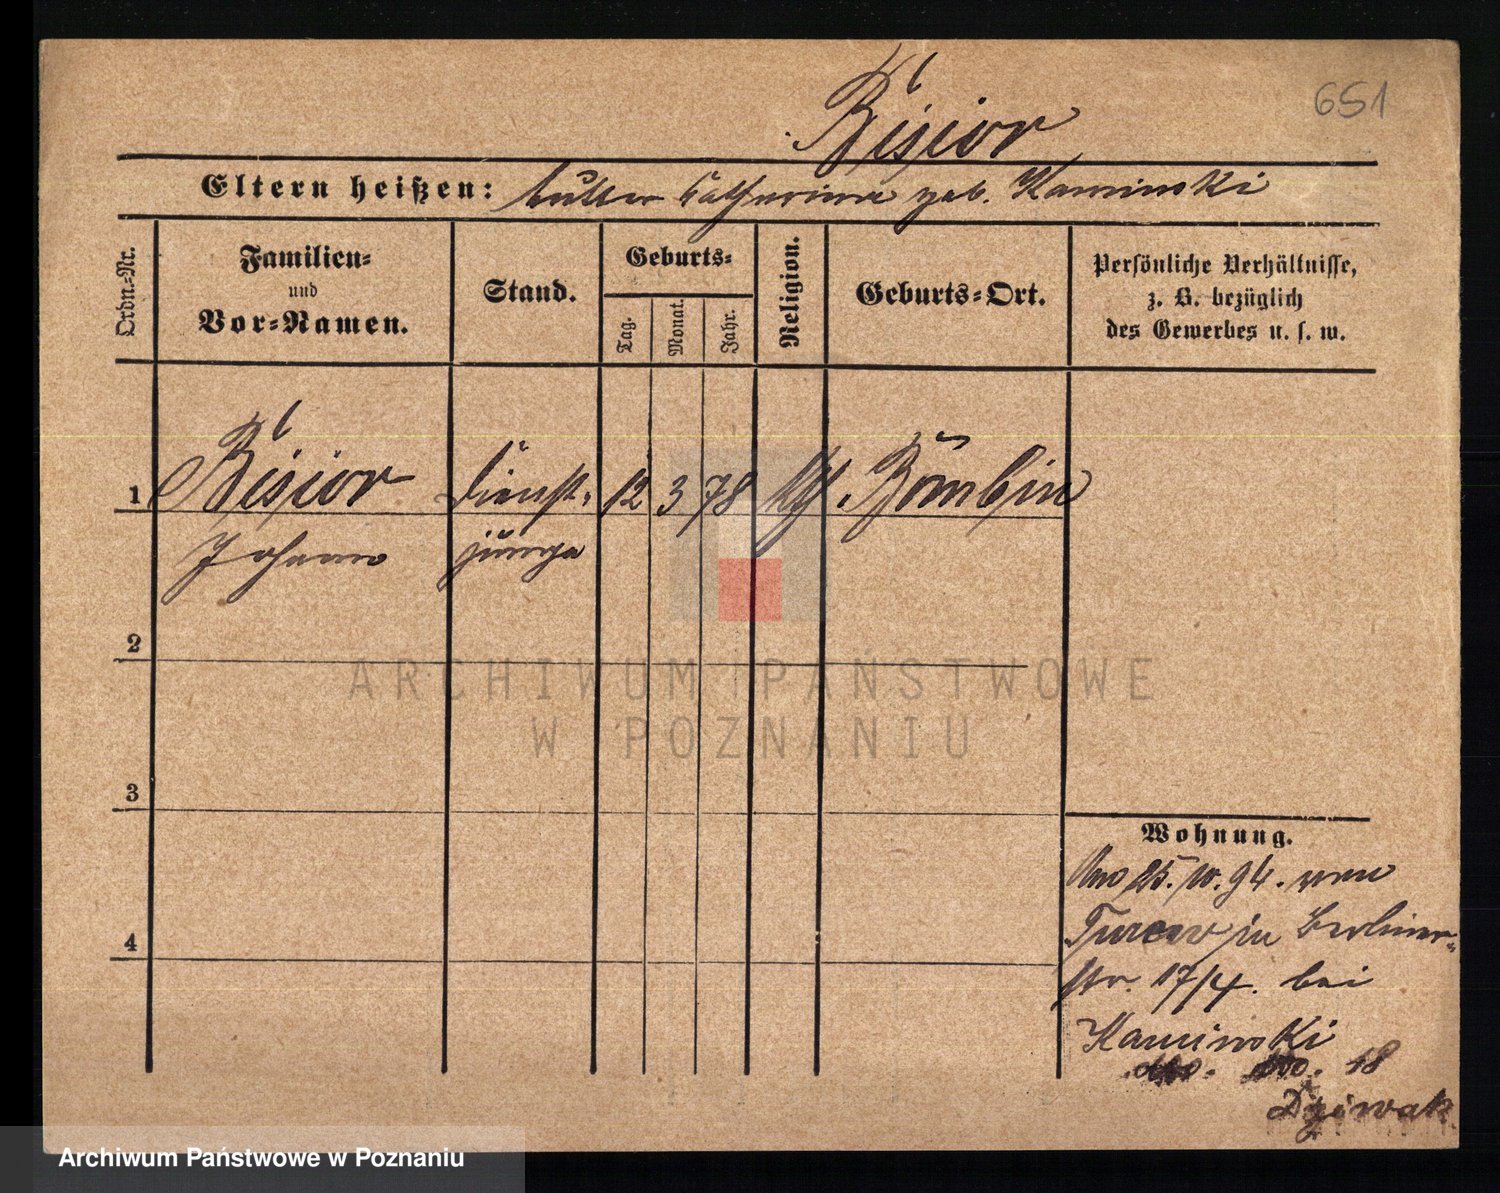 651
Bisior
Eltern heißen: Mutter Catharina geb. Kaminski
Ordn.-Nr.
Familien-
und
Vor-Namen.
Stand.
Geburts-
Tag.
Monat.
Jahr.
Religion.
Geburts-Ort.
Persönliche Verhältnisse,
z. B. bezüglich
des Gewerbes u. s. w.
1 Bisior Dienst- 12 3 78 kth. Bömbin
Johann junge
2
3
4
Wohnung.
25. 10. 94. von
in Berliner-
str. 17/4. bei
Kaminski
18
Dziwak
ARCHIWUM PAŃSTWOWE
W POZNANIU
Archiwum Państwowe w Poznaniu